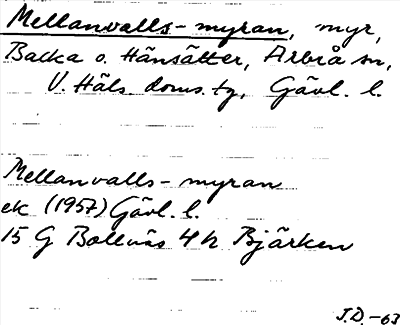 Mellanvalls-myran, myr,
Backa o. Hänsätter, Arbrå sn,
V. Häls. doms.tg, Gävl. l.
Mellanvalls-myran
ek (1957) Gävl. l.
15 G Bollnäs 4 h Bjärken
J.D.-63